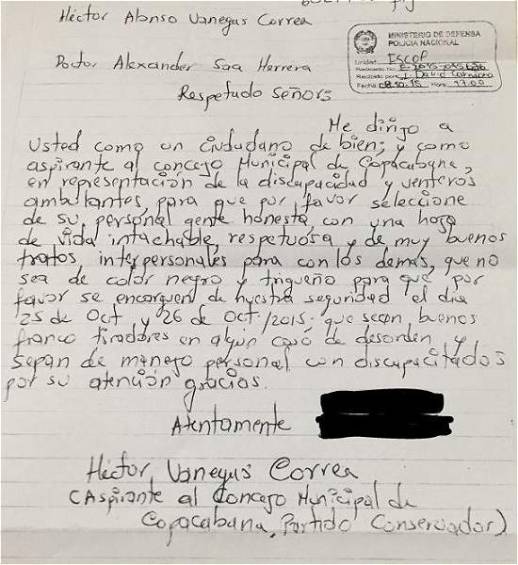 Héctor Alonso Vanegas Correa
MINISTERIO DE DEFENSA
POLICIA NACIONAL
Unidad ESCOP
Recibido por: J. David
Fecha 08.10.15 Hora: 17:00
Doctor Alexander Saa Herrera
Respetado Señors
Me dirijo a
Usted como un ciudadano de bien; y como
aspirante al concejo Municipal de Copacabana,
en representación de la discapacidad y venteros
ambulantes, para que por favor seleccione
de su, personal gente honesta, con una hoja
de vida intachable, respetuosa y de muy buenos
tratos, interpersonales para con los demás, que no
sea de color negro y trigueño para que por
favor se encarguen de nuestra seguridad el día
25 de Oct y 26 de Oct/2015; que sean buenos
franco tiradores en algún caso de desorden y
sepan de manejo personal con discapacitados
por su atención gracias.
Atentamente
Héctor, Vanegas Correa
(Aspirante al Concejo Municipal de
Copacabana, Partido Conservador)